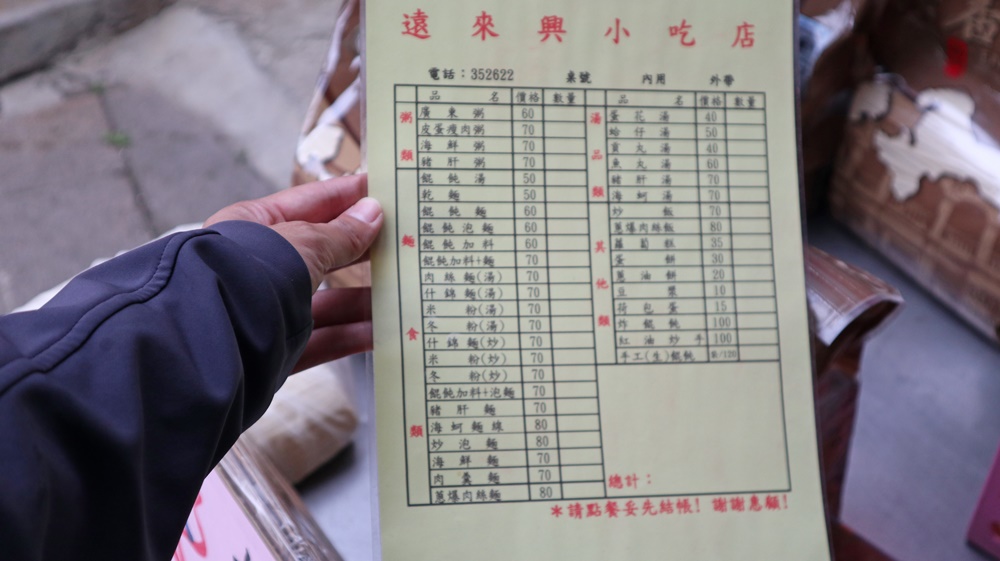 遠來興小吃店
電話：352622 桌號 內用 外帶
品名 價格 數量
粥類
廣東粥 60
皮蛋瘦肉粥 70
海鮮粥 70
豬肝粥 70
麵食類
餛飩湯 50
乾麵 50
餛飩麵 60
餛飩泡麵 60
餛飩加料 60
餛飩加料+麵 70
肉絲麵(湯) 70
什錦麵(湯) 70
米粉(湯) 70
冬粉(湯) 70
什錦麵(炒) 70
米粉(炒) 70
冬粉(炒) 70
餛飩加料+泡麵 70
豬肝麵 70
海蚵麵線 80
炒泡麵 80
海鮮麵 70
肉羹麵 70
蔥爆肉絲麵 80
品名 價格 數量
湯品類
蛋花湯 40
蛤仔湯 50
貢丸湯 40
魚丸湯 60
豬肝湯 70
海蚵湯 70
其他類
炒飯 70
蔥爆肉絲飯 80
蘿蔔糕 35
蛋餅 30
蔥油餅 20
豆漿 10
荷包蛋 15
炸餛飩 100
紅油炒手 100
手工(生)餛飩 /120
總計：
＊請點餐妥先結帳！謝謝惠顧！